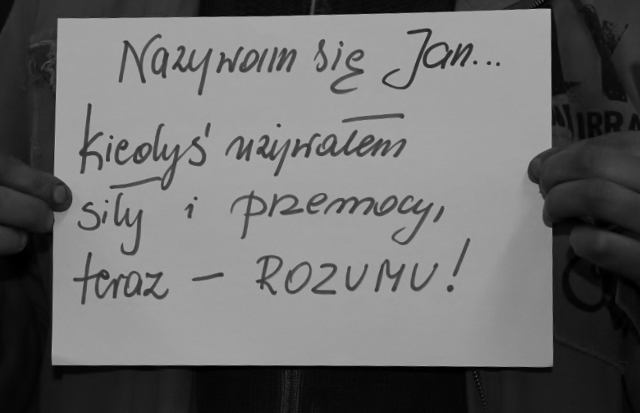 Nazywam się Jan...
kiedyś używałem
siły i przemocy,
teraz — ROZUMU!